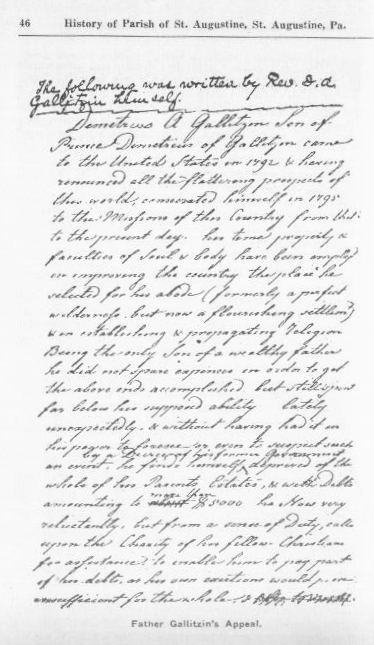 46 History of Parish of St. Augustine, St. Augustine, Pa.
The following was written by Rev. D. A.
Gallitzin himself.
Demetrius A Gallitzin Son of
Prince Demetrius of Gallitzin came
to the United States in 1792 & having
renounced all the flattering prospects of
this world, consecrated himself in 1795
to the Missions of this Country from that
to the present day. his time property &
faculties of Soul & body have been employd
in improving the country the place he
selected for his abode (formerly a perfect
wilderness but now a flourishing settlemt)
& in establishing & propagating Religion
Being the only Son of a wealthy father
he did not spare expences in order to get
the above ends accomplished, but still
far below his supposed ability lately
unexpectedly, & without having had it in
his power to foresee or even to suspect such
by a Decree of his former Government
an event, he finds himself deprived of the
whole of his Parents Estates, & with Debts
more than
amounting to about $5000 he Now very
reluctantly, but from a sense of Duty, calls
upon the Charity of his fellow-Christians
for assistance; to enable him to pay part
of his debts, as his own exertions would
insufficient for the whole
Father Gallitzin's Appeal.